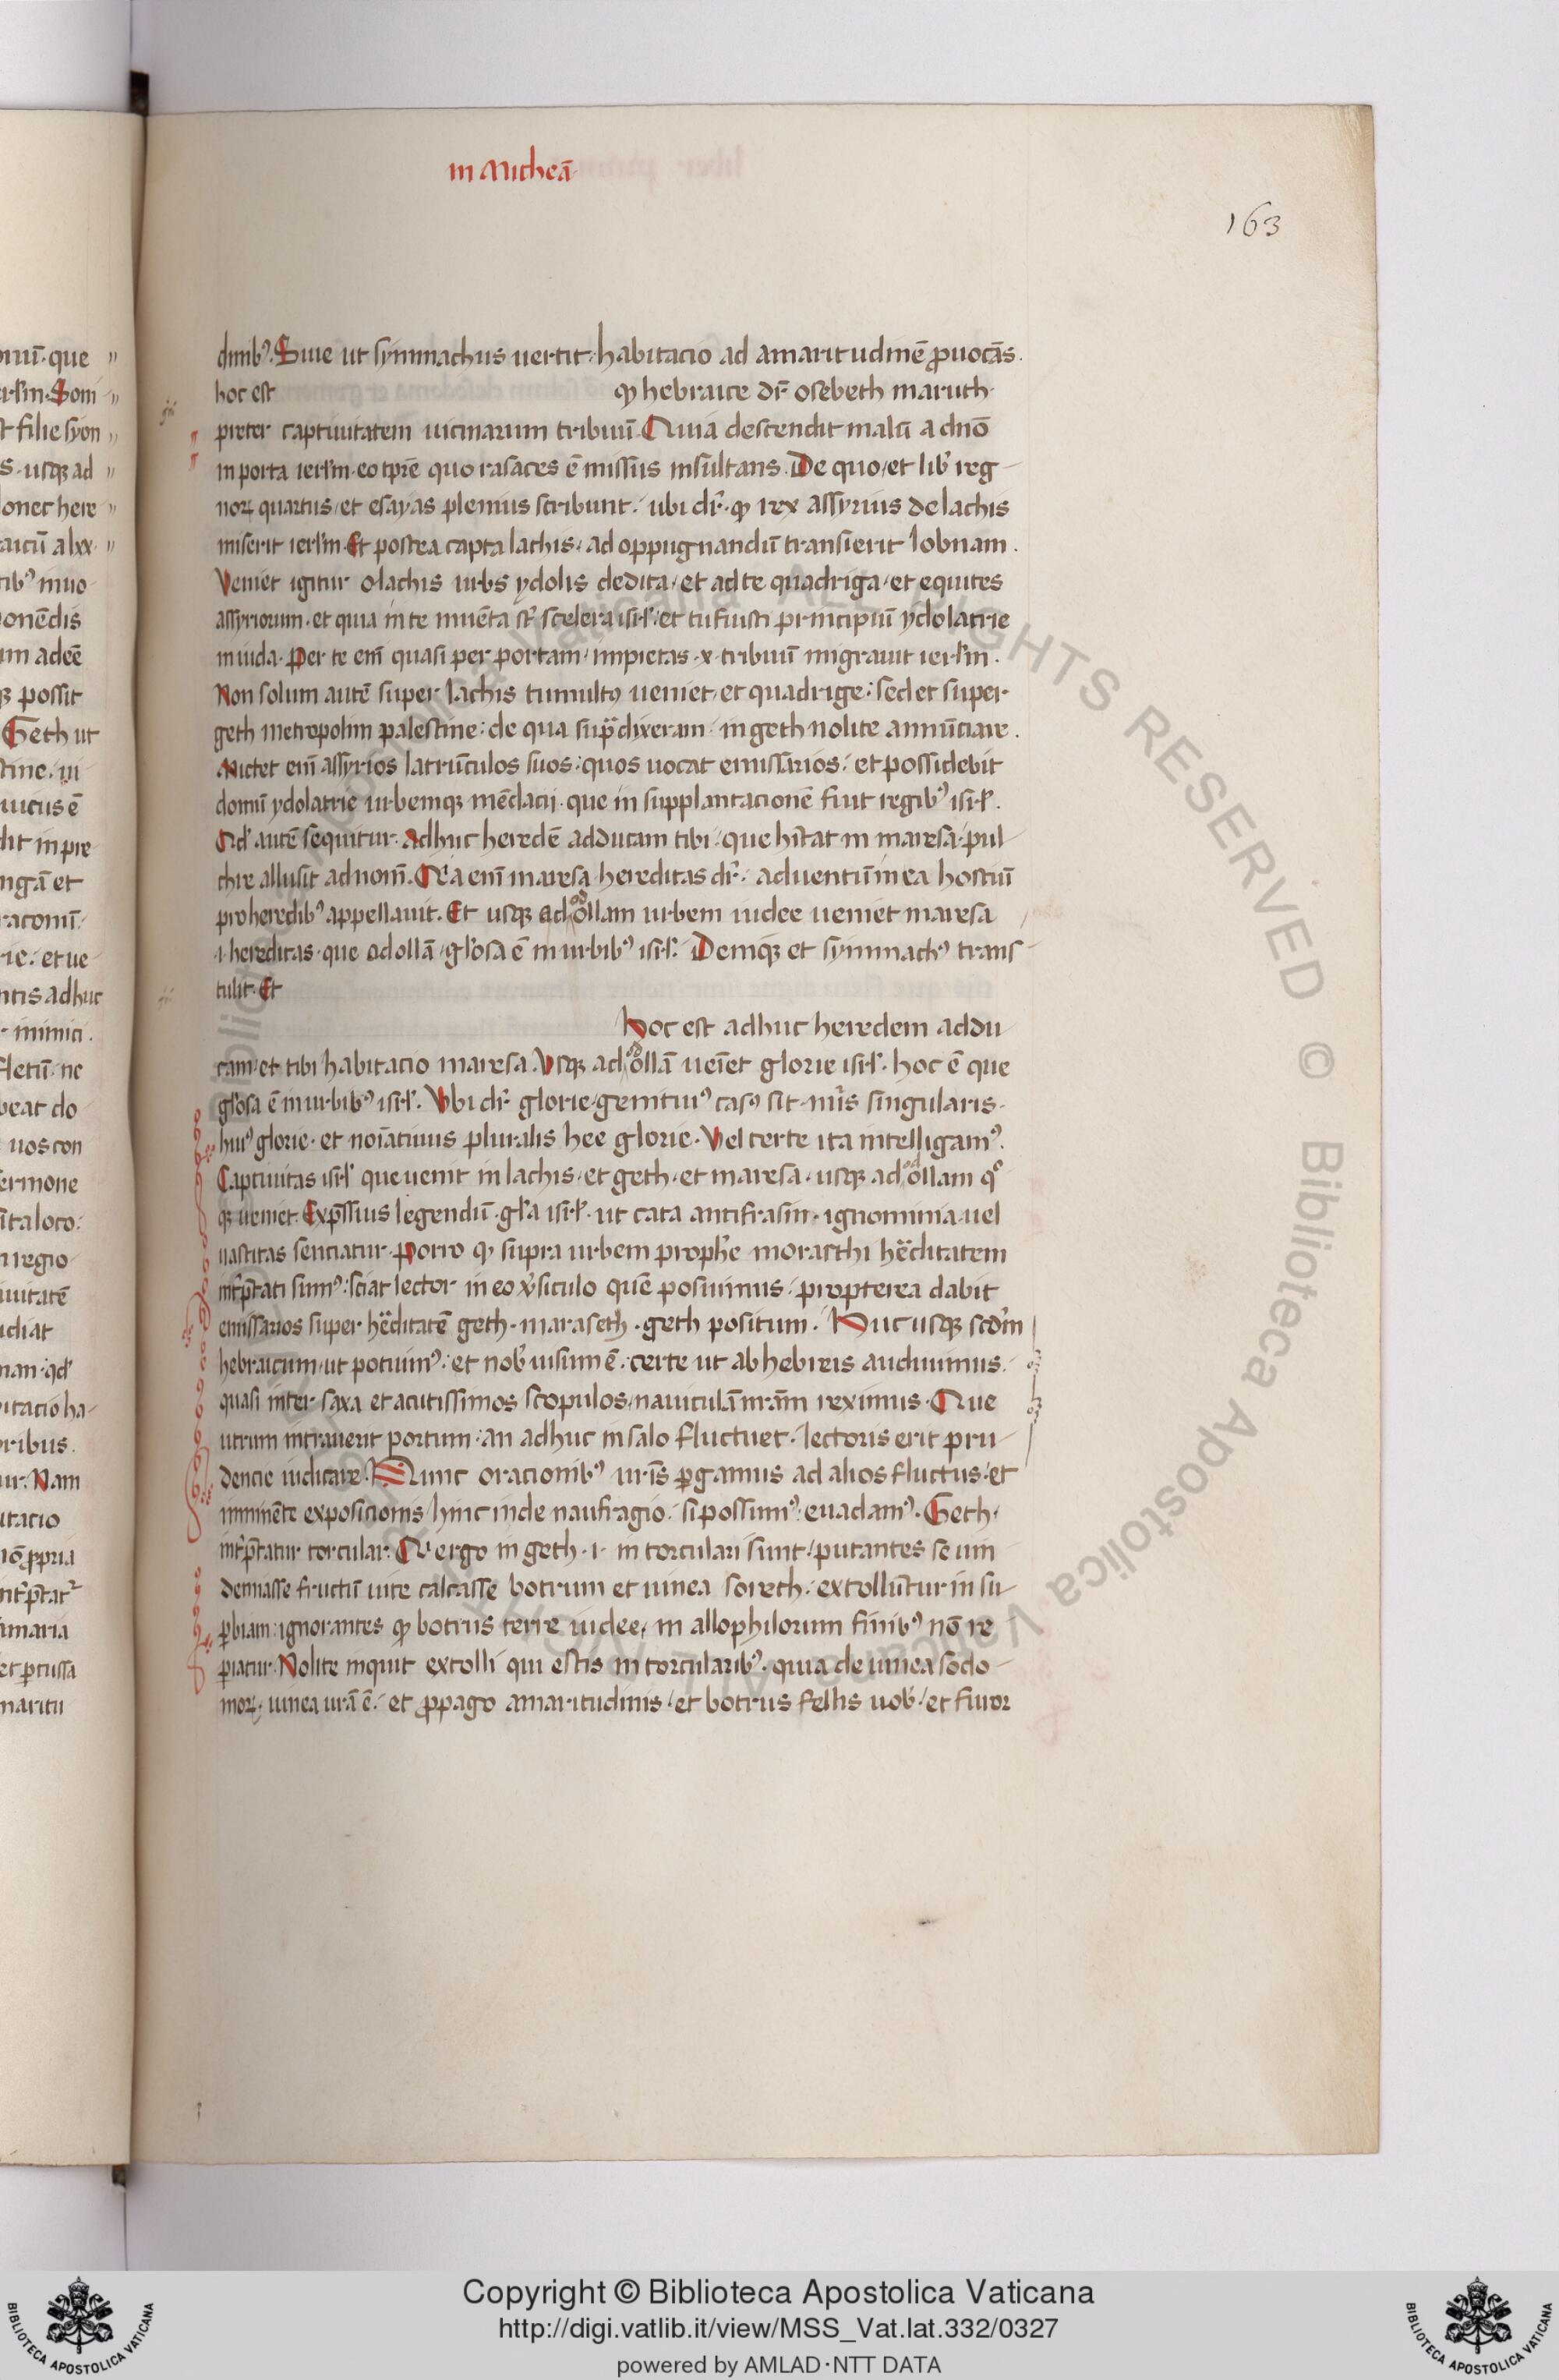 in Micheā
163
dinibꝰ. Siue ut symmachus uertit. habitacio ad amaritudinē ꝓuocās.
hoc est ꝙ hebraice dr̄ osebeth maruth.
preter captiuitatem uicinarum tribuū. Quia descendit malū a dn̄o
in porta ierl̄m. eo tp̄re quo rasaces ē missus insultans. De quo et lib̄ reg
noꝝ quartus et esayas plenius scribunt. ubi dr̄. ꝙ rex assyrius de lachis
miserit ierl̄m. Et postea capta lachis. ad oppugnandū transierit lobnam.
Veniet igitur o lachis urbs ydolis dedita et ad te quadriga et equites
assyriorum. et quia in te inuēta st̄ scelera isrl̄. et tu fuisti principiū ydolatrie
in iuda. Per te em̄ quasi per portam impietas .x. tribuū migrauit ierl̄m.
Non solum autē super lachis tumultꝰ ueniet et quadrige: sed et super
geth metropolim palestine: de qua supͣ dixeram. in geth nolite annūciare.
Mictet em̄ assyrios latrūculos suos: quos uocat emissarios. et possidebit
domū ydolatrie urbemqꝫ mēdacij. que in supplantacionē fiut regibꝰ isrl̄.
Qd̄ autē sequitur. Adhuc heredē adducam tibi. que hītat in maresa. pul
chre allusit ad nom̄. Q̄a em̄ maresa hereditas dr̄. aduentū in ea hostiū
pro heredibꝰ appellauit. Et usqꝫ ad odollam urbem iudee ueniet maresa
.i. hereditas. que odollā gl̄osa ē in urbibꝰ isrl̄. Deniqꝫ et symmachꝰ trans
tulit. Et
hoc est adhuc heredem addu
cam. et tibi habitacio maresa. Vsqꝫ ad odollā ueīet glorie isrl̄. hoc ē que
gl̄osa ē in urbibꝰ isrl̄. Vbi dr̄ glorie genitiuꝰ casꝰ sit nūis singularis.
huiꝰ glorie. et noīatiuus pluralis hee glorie. Vel certe ita intelligamꝰ.
Captiuitas isrl̄ que uenit in lachis. et geth. et maresa. usqꝫ ad odollam qͦ
qꝫ ueniet. Exp̄ssius legendū. gl̄a isrl̄. ut cata antifrasin. ignominia uel
uastitas senciatur. Porro ꝙ supra urbem proph̄e morasthi hēditatem
int̄p̄tati sumꝰ: sciat lector in eo ṽsiculo quē posuimus. propterea dabit
emissarios super hēditatē geth. maraseth. geth positum. Huc usqꝫ scd̄m
hebraicum. ut potuimꝰ. et nob̄ uisum ē. certe ut ab hebreis audiuimus.
quasi inter saxa et acutissimos scopulos. nauiculā nr̄am reximus. Que
utrum intrauerit portum. an adhuc in salo fluctuet. lectoris erit pru
dencie iudicare. Nunc oracionibꝰ ur̄is ꝑgamus ad alios fluctus. et
imminēte exposicionis hinc inde naufragio. si possumꝰ. euadamꝰ. Geth.
int̄p̄tatur torcular. Qͥ ergo in geth .i. in torculari sunt. putantes se uin
demiasse fructū uite calcasse botrum et uinea soreth. extollūtur in su
ꝑbiam: ignorantes ꝙ botrus terre iudee. in allophilorum finibꝰ nō re
ꝑiatur. Nolite inquit extolli qui estis in torcularibꝰ. quia de uinea sodo
moꝝ. uinea ur̄a ē. et ꝓpago amaritudinis. et botrus fellis uob̄. et furor
Copyright © Biblioteca Apostolica Vaticana
http://digi.vatlib.it/view/MSS_Vat.lat.332/0327
powered by AMLAD·NTT DATA